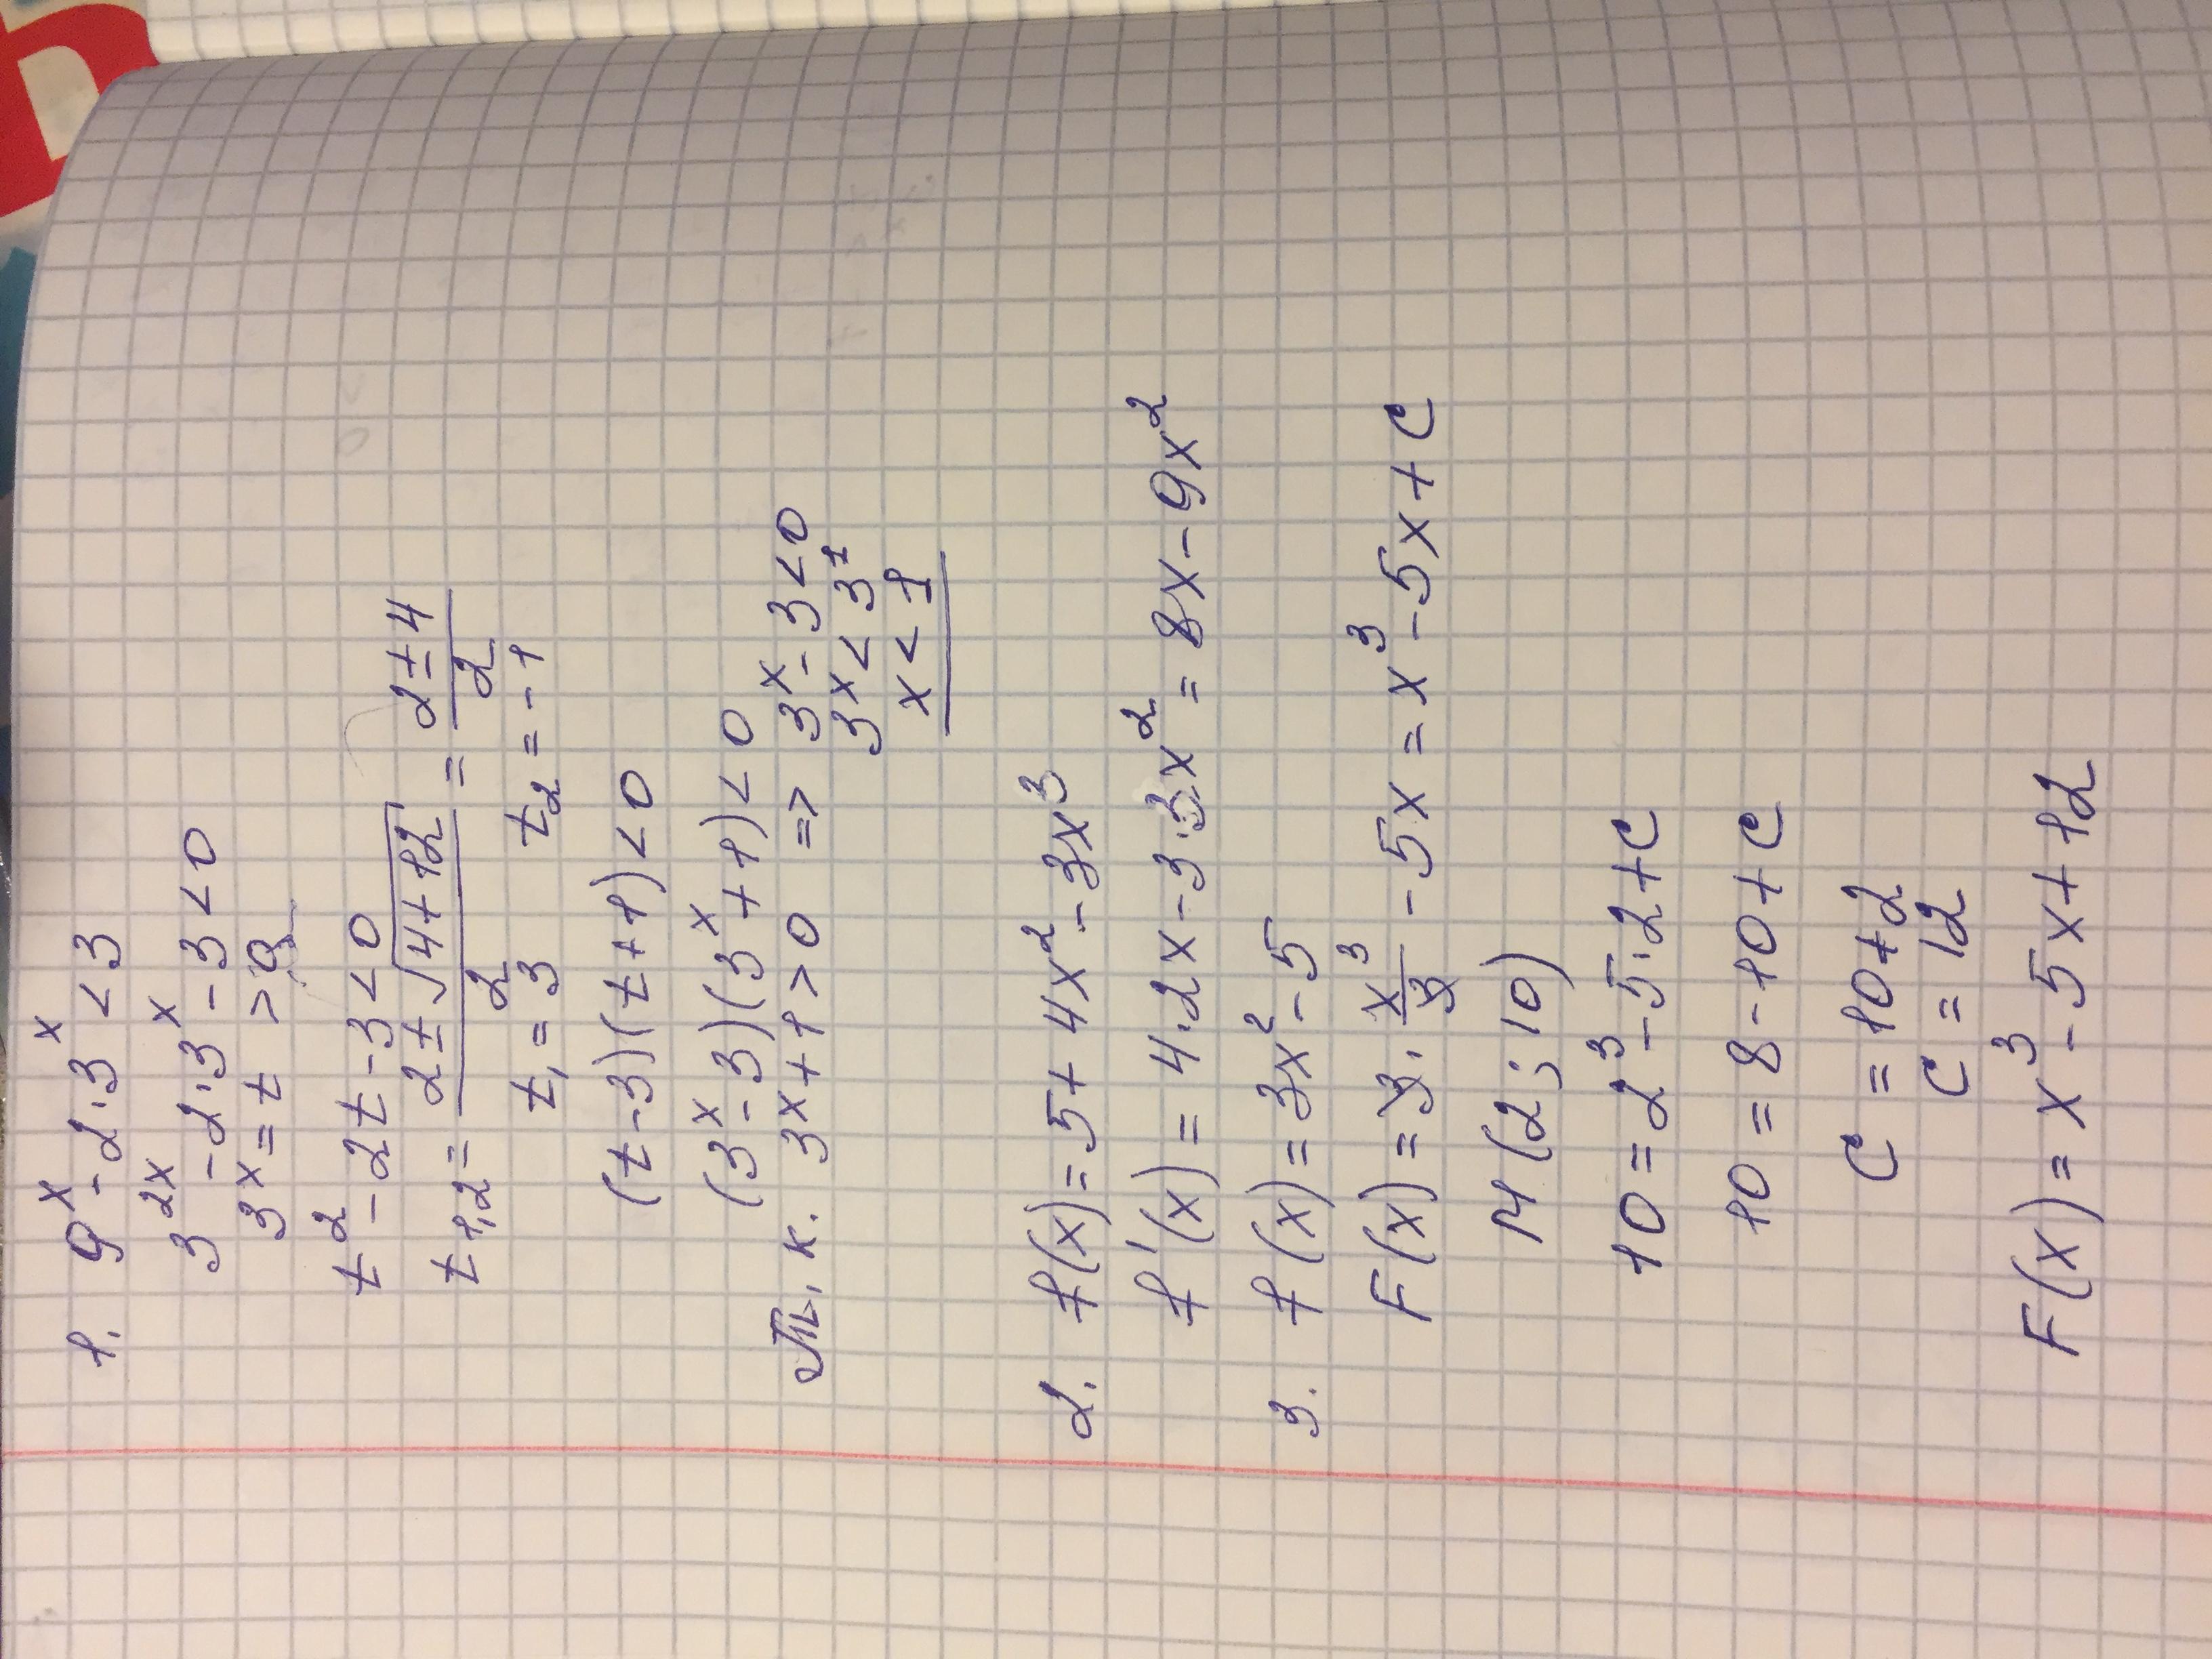 1. 9^x - 2·3^x < 3
3^2x - 2·3^x - 3 < 0
3^x = t > 0
t^2 - 2t - 3 < 0
t1,2 = (2 ± √(4+12))/2 = (2 ± 4)/2
t1 = 3 t2 = -1
(t-3)(t+1) < 0
(3^x - 3)(3^x + 1) < 0
Т. к. 3^x + 1 > 0 => 3^x - 3 < 0
3^x < 3^1
x < 1
2. f(x) = 5 + 4x^2 - 3x^3
f'(x) = 4·2x - 3·3x^2 = 8x - 9x^2
3. f(x) = 3x^2 - 5
F(x) = 3·x^3/3 - 5x = x^3 - 5x + C
M (2; 10)
10 = 2^3 - 5·2 + C
10 = 8 - 10 + C
C = 10 + 2
C = 12
F(x) = x^3 - 5x + 12